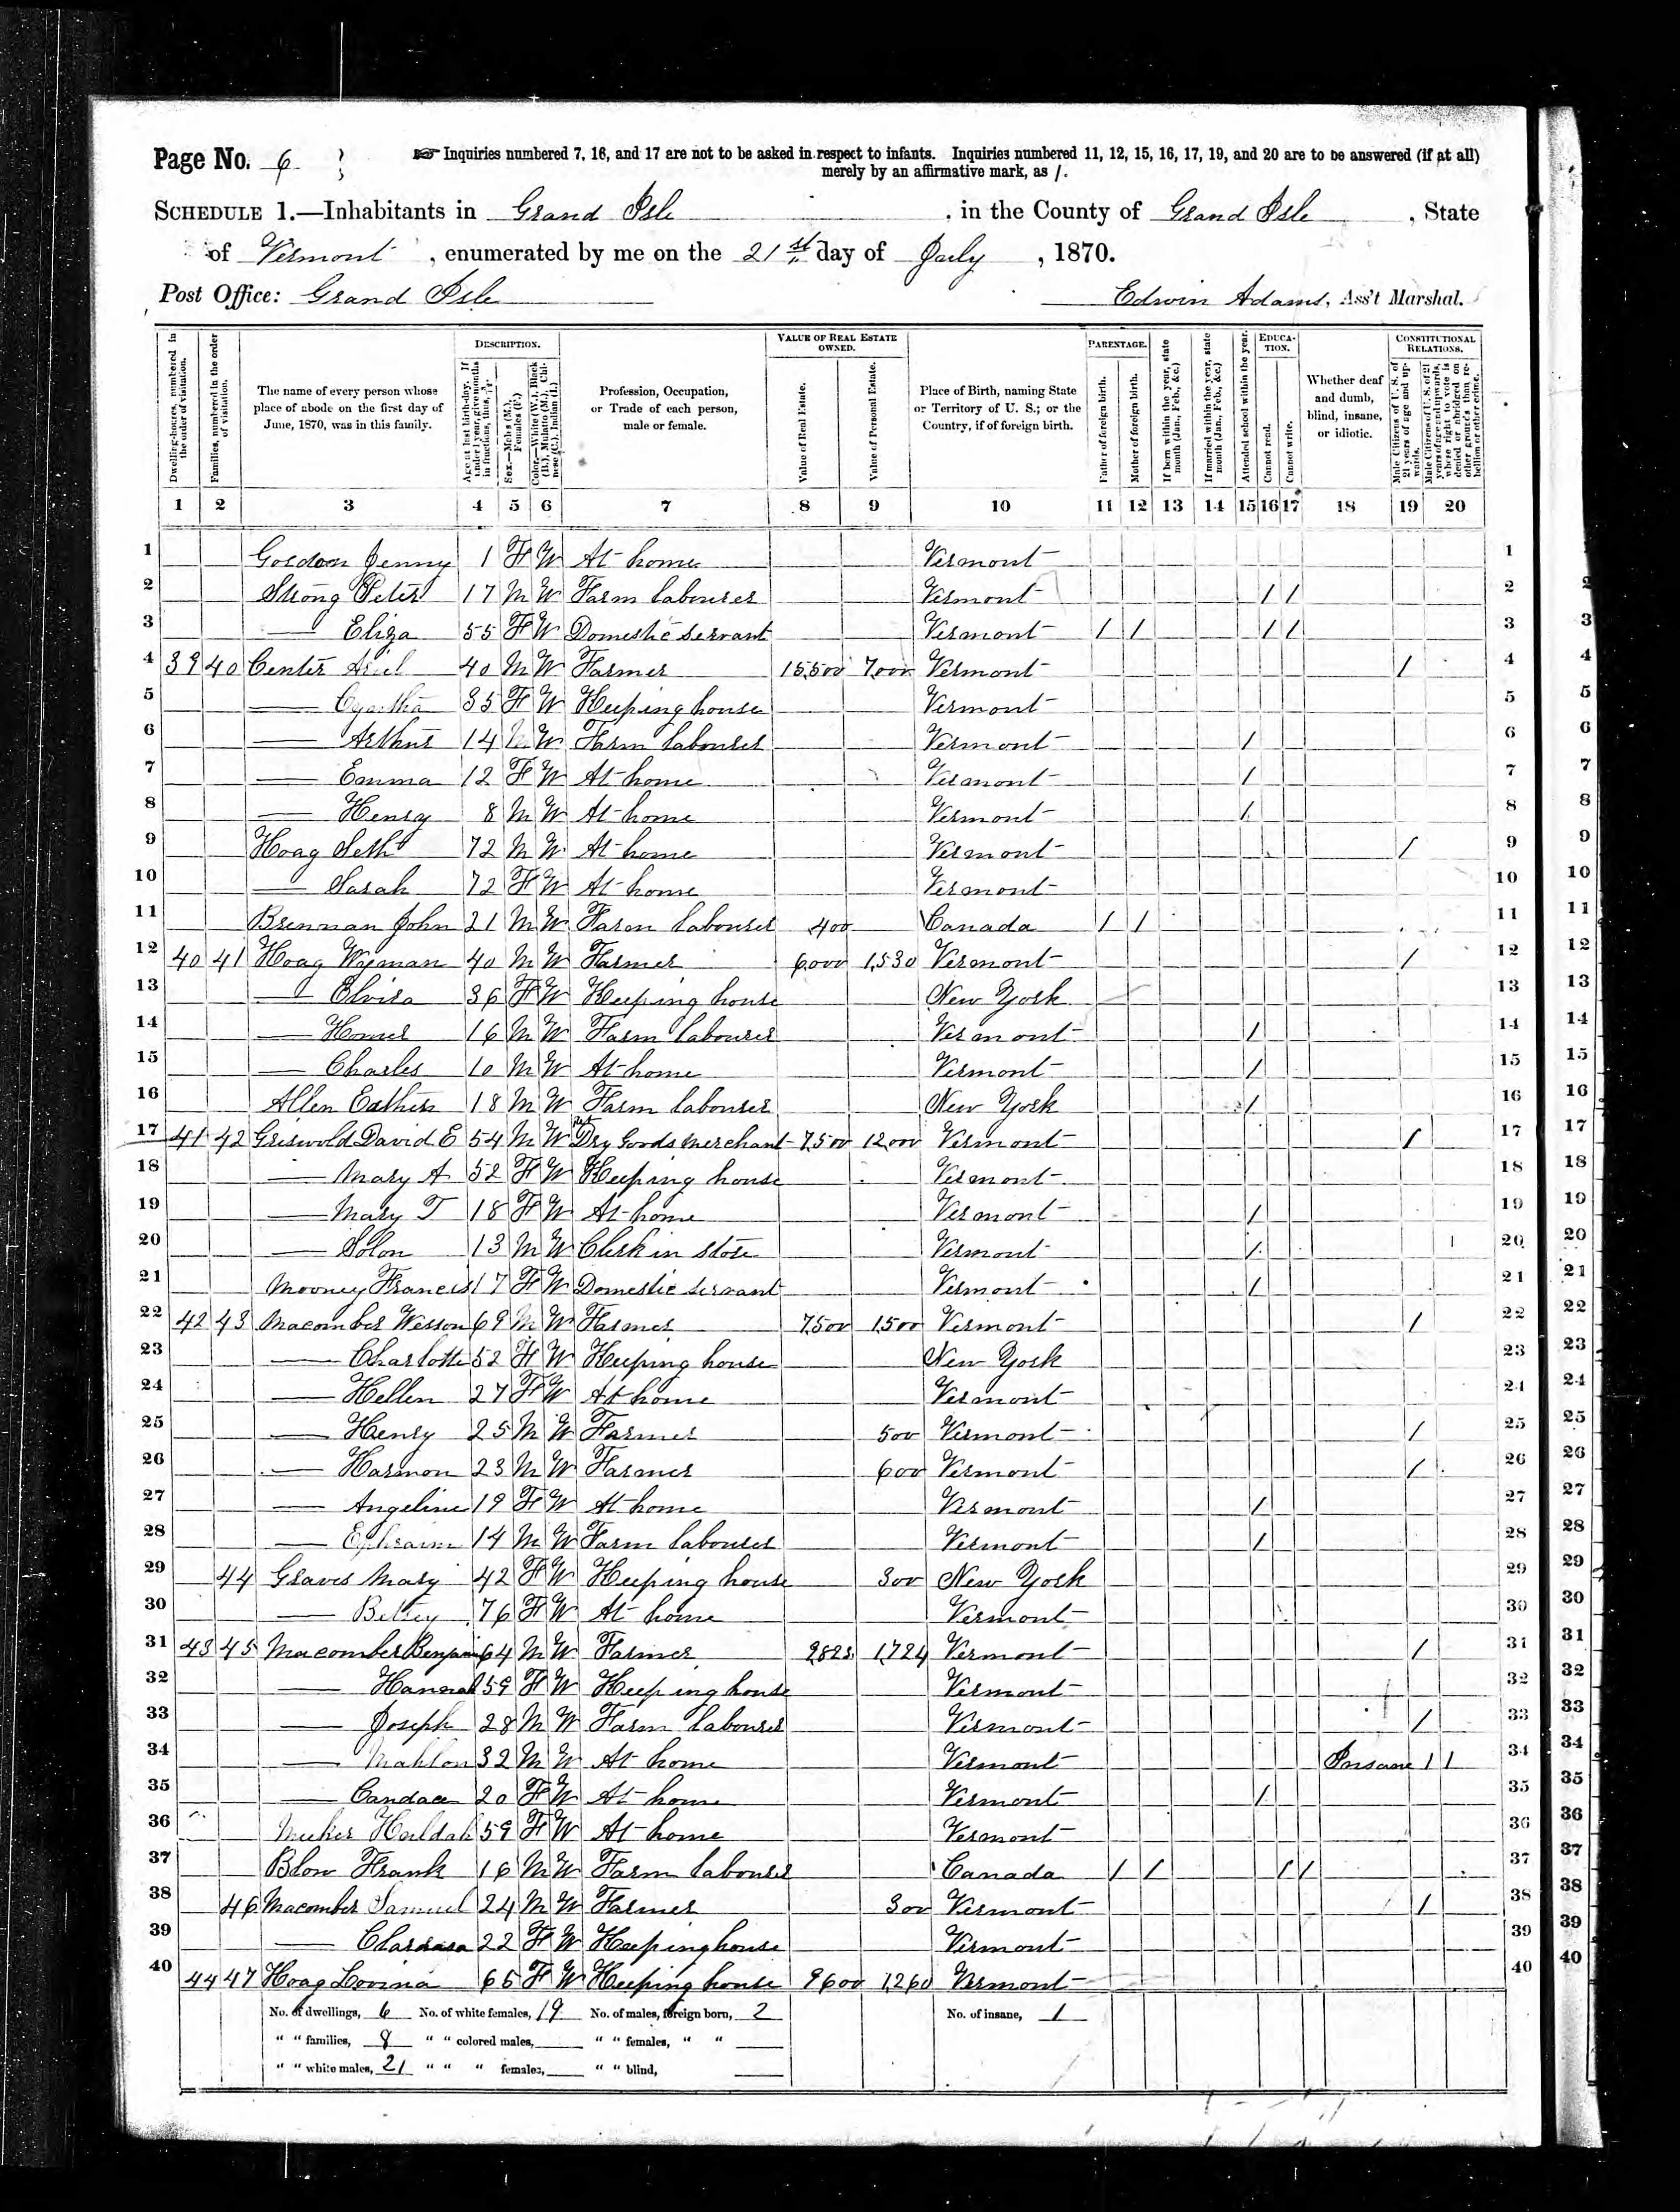 Page No. 6
☞ Inquiries numbered 7, 16, and 17 are not to be asked in respect to infants. Inquiries numbered 11, 12, 15, 16, 17, 19, and 20 are to be answered (if at all)
merely by an affirmative mark, as /.
SCHEDULE 1.—Inhabitants in Grand Isle, in the County of Grand Isle, State
of Vermont, enumerated by me on the 21st day of July, 1870.
Post Office: Grand Isle
Edwin Adams, Ass't Marshal.
Dwelling-houses, numbered in the order of visitation.
Families, numbered in the order of visitation.
The name of every person whose place of abode on the first day of June, 1870, was in this family.
DESCRIPTION.
Age at last birth-day. If under 1 year, give months in fractions, thus,
Sex.—Males (M.), Females (F.)
Color.—White (W.), Black (B.), Mulatto (M.), Chinese (C.), Indian (I.)
Profession, Occupation, or Trade of each person, male or female.
VALUE OF REAL ESTATE OWNED.
Value of Real Estate.
Value of Personal Estate.
Place of Birth, naming State or Territory of U. S.; or the Country, if of foreign birth.
PARENTAGE.
Father of foreign birth.
Mother of foreign birth.
If born within the year, state month (Jan., Feb., &c.)
If married within the year, state month (Jan., Feb., &c.)
Attended school within the year.
EDUCATION.
Cannot read.
Cannot write.
Whether deaf and dumb, blind, insane, or idiotic.
CONSTITUTIONAL RELATIONS.
Male Citizens of U. S. of 21 years of age and upwards.
Male Citizens of U. S. of 21 years of age and upwards, whose right to vote is denied or abridged on other grounds than rebellion or other crime.
1 2 3 4 5 6 7 8 9 10 11 12 13 14 15 16 17 18 19 20
1 Gordon Jenny 1 F W At home Vermont 1
2 Strong Peter 17 M W Farm labourer Vermont / / 2
3 — Eliza 55 F W Domestic servant Vermont / / / / 3
4 39 40 Center 40 M W Farmer 15,500 7,000 Vermont / 4
5 — 35 F W Keeping house Vermont 5
6 — Arthur 14 M W Farm labourer Vermont / 6
7 — Emma 12 F W At home Vermont / 7
8 — Henry 8 M W At home Vermont / 8
9 Hoag Seth 72 M W At home Vermont / 9
10 — Sarah 72 F W At home Vermont 10
11 Brennan John 21 M W Farm labourer 400 Canada / / 11
12 40 41 Hoag Wyman 40 M W Farmer 6000 1,530 Vermont / 12
13 — Elvira 36 F W Keeping house New York 13
14 — Homer 16 M W Farm labourer Vermont / 14
15 — Charles 10 M W At home Vermont / 15
16 Allen 18 M W Farm labourer New York / 16
17 41 42 Griswold David E 54 M W Ret Dry Goods Merchant 7,500 12,000 Vermont / 17
18 — Mary A 52 F W Keeping house Vermont 18
19 — Mary T 18 F W At home Vermont / 19
20 — Solon 13 M W Clerk in store Vermont / 20
21 Mooney Frances 17 F W Domestic servant Vermont / 21
22 42 43 Macomber Wesson 69 M W Farmer 7,500 1,500 Vermont / 22
23 — Charlotte 52 F W Keeping house New York 23
24 — Hellen 27 F W At home Vermont 24
25 — Henry 25 M W Farmer 500 Vermont / 25
26 — Harmon 23 M W Farmer 600 Vermont / 26
27 — Angeline 19 F W At home Vermont / 27
28 — Ephraim 14 M W Farm labourer Vermont / 28
29 44 Graves Mary 42 F W Keeping house 300 New York 29
30 — Betsey 76 F W At home Vermont 30
31 43 45 Macomber Benjamin 64 M W Farmer 9,825 1,724 Vermont / 31
32 — Hannah 59 F W Keeping house Vermont 32
33 — Joseph 28 M W Farm labourer Vermont / 33
34 — Mahlon 32 M W At home Vermont Insane / / 34
35 — Candace 20 F W At home Vermont / 35
36 Huldah 59 F W At home Vermont 36
37 Blow Frank 16 M W Farm labourer Canada / / / / 37
38 46 Macomber Samuel 24 M W Farmer 300 Vermont / 38
39 — 22 F W Keeping house Vermont 39
40 44 47 Hoag Lovina 65 F W Keeping house 9600 1,260 Vermont 40
No. of dwellings, 6 No. of white females, 19 No. of males, foreign born, 2 No. of insane, 1
" " families, 8 " " colored males, " " females, " "
" " white males, 21 " " " females, " " blind,